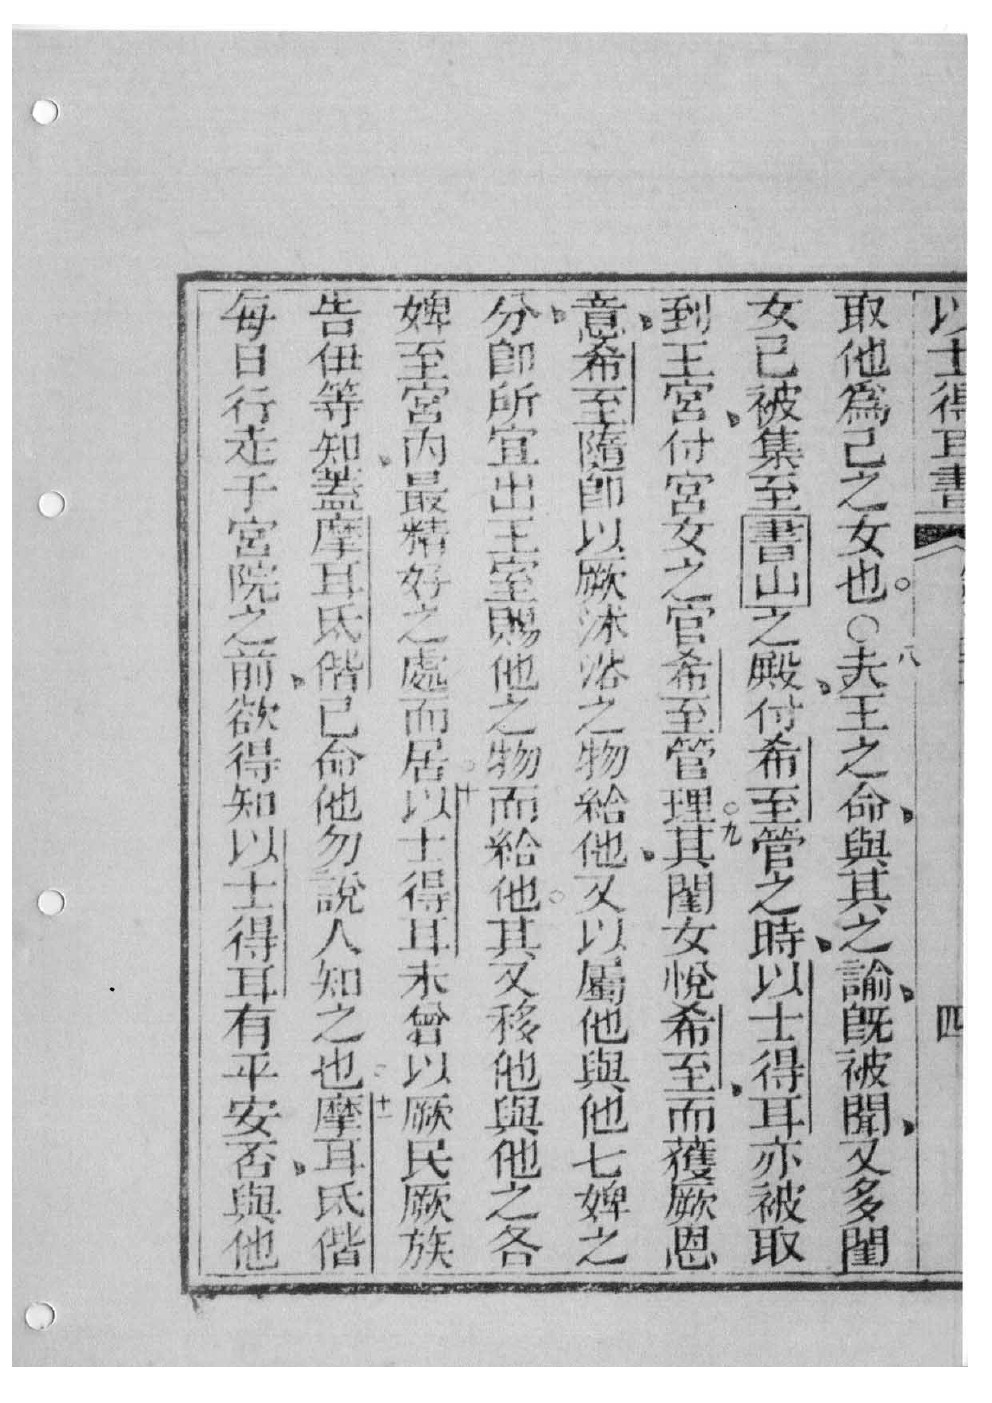 以士得耳書 四
取他為己之女也。〇夫王之命與其之諭既被聞又多閨
八
女已被集至書山之殿付希至管之時以士得耳亦被取
到王宮付宮女之官希至管理。其閨女悅希至而獲厥恩
九
意希至隨即以厥沐浴之物給他又以屬他與他七婢之
分即所宜出王室賜他之物而給他。其又移他與他之各
婢至宮內最精好之處而居。以士得耳未曾以厥民厥族
十
告伊等知蓋摩耳氐偕已命他勿說人知之也。摩耳氐偕
十一
每日行走于宮院之前欲得知以士得耳有平安否與他